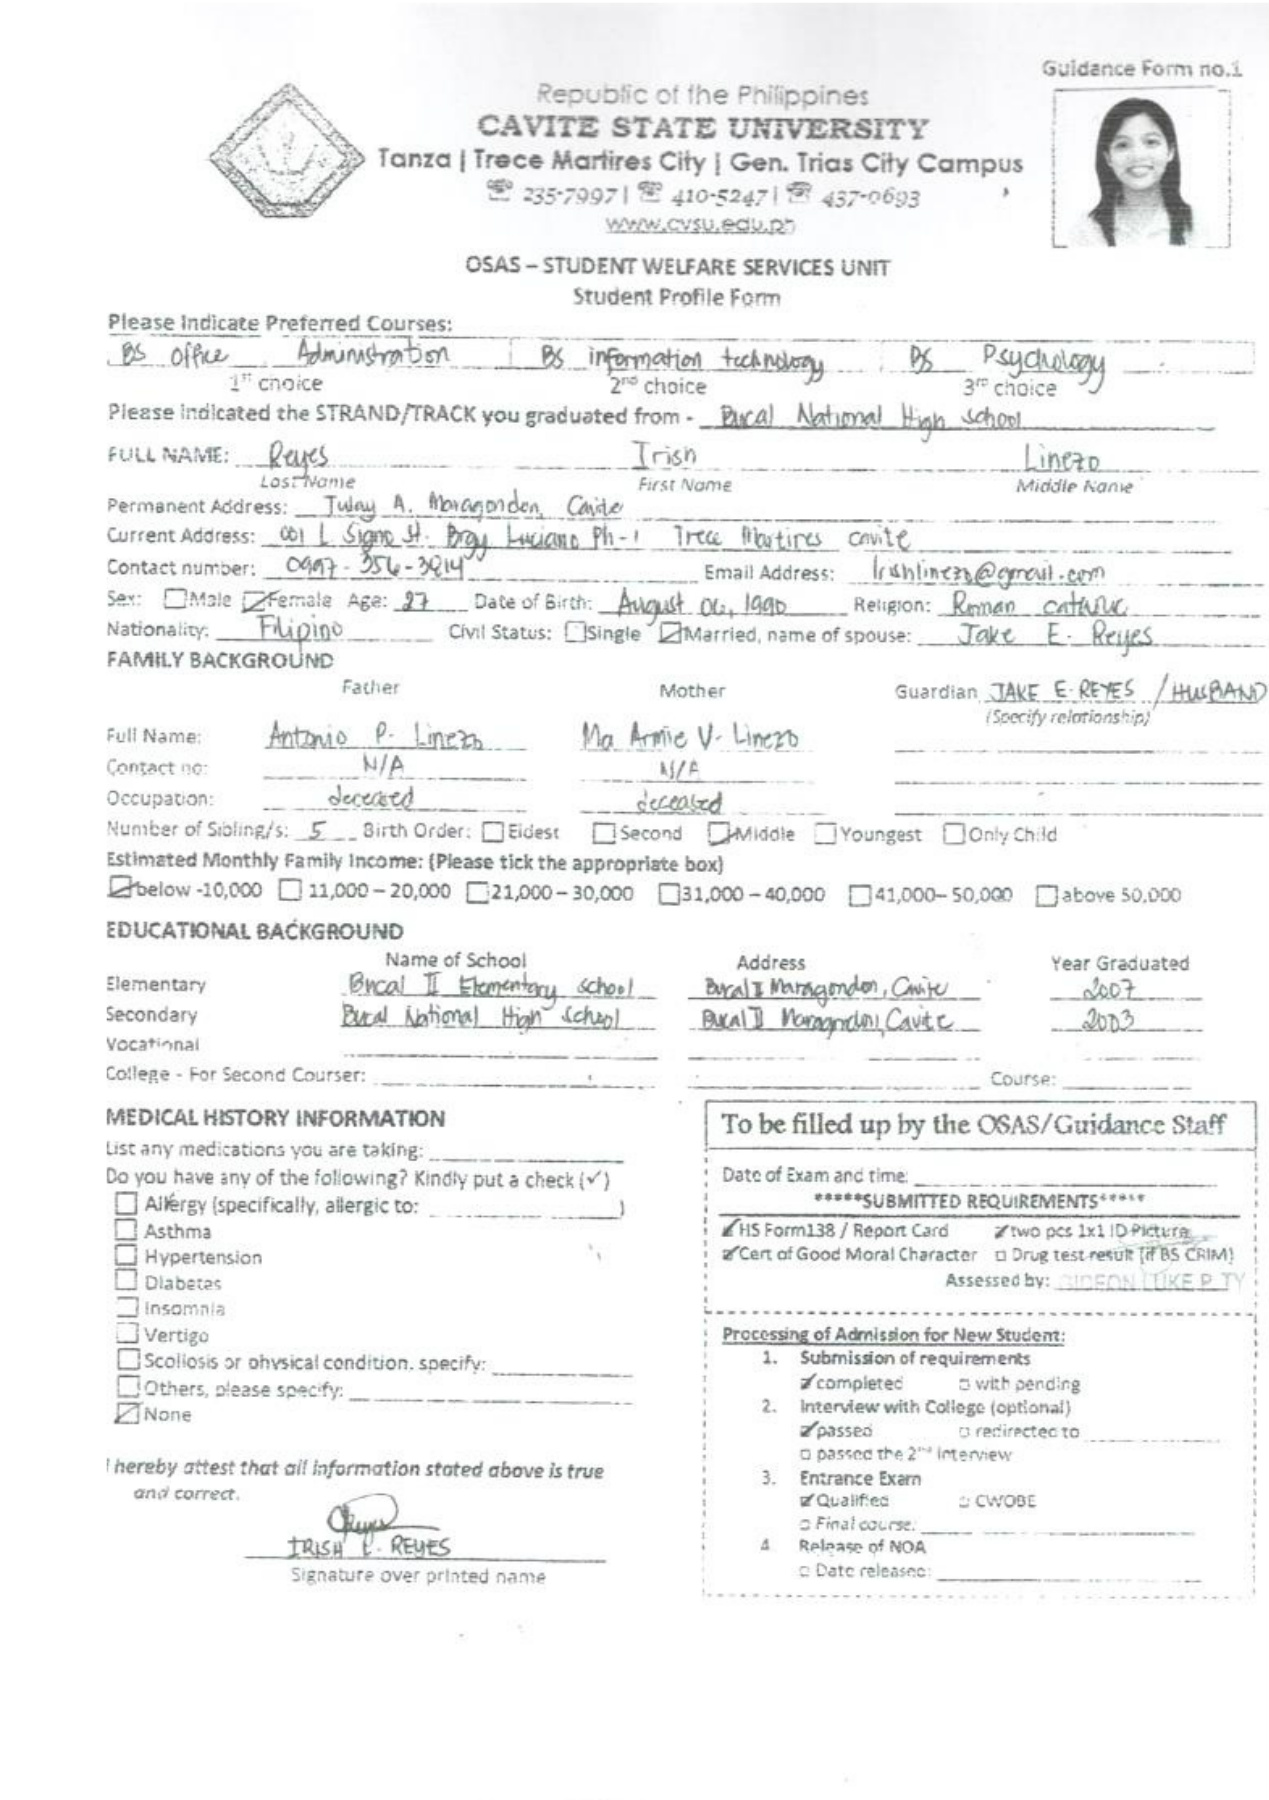 Guidance Form no.1
Republic of the Philippines
CAVITE STATE UNIVERSITY
Tanza | Trece Martires City | Gen. Trias City Campus
235-7997 | 410-5247 | 437-0693
www.cvsu.edu.ph
OSAS – STUDENT WELFARE SERVICES UNIT
Student Profile Form
Please Indicate Preferred Courses:
BS office Administration BS information technology BS Psychology
1st choice 2nd choice 3rd choice
Please indicated the STRAND/TRACK you graduated from - Bucal National High school
FULL NAME: Reyes Irish Linezo
Last Name First Name Middle Name
Permanent Address: Tulay A. Maragondon, Cavite
Current Address: 001 L Signo St. Brgy Luciano Ph-1 Trece Martires cavite
Contact number: 0997-356-3814 Email Address: Irishlinezo@gmail.com
Sex: Male Female Age: 27 Date of Birth: August 06, 1990 Religion: Roman catholic
Nationality: Filipino Civil Status: Single Married, name of spouse: Jake E. Reyes
FAMILY BACKGROUND
Father Mother Guardian JAKE E. REYES / HUSBAND
(Specify relationship)
Full Name: Antonio P. Linezo Ma Armie V. Linezo
Contact no: N/A N/A
Occupation: deceased deceased
Number of Sibling/s: 5 Birth Order: Eldest Second Middle Youngest Only Child
Estimated Monthly Family Income: (Please tick the appropriate box)
below -10,000 11,000 – 20,000 21,000 – 30,000 31,000 – 40,000 41,000– 50,000 above 50,000
EDUCATIONAL BACKGROUND
Name of School Address Year Graduated
Elementary Bucal II Elementary school Bucal II Maragondon, Cavite 2007
Secondary Bucal National High School Bucal II Maragondon, Cavite 2003
Vocational
College - For Second Courser: Course:
MEDICAL HISTORY INFORMATION
List any medications you are taking:
Do you have any of the following? Kindly put a check (✓)
Allergy (specifically, allergic to: )
Asthma
Hypertension
Diabetes
Insomnia
Vertigo
Scoliosis or physical condition, specify:
Others, please specify:
None
I hereby attest that all information stated above is true
and correct.
IRISH L. REYES
Signature over printed name
To be filled up by the OSAS/Guidance Staff
Date of Exam and time:
*****SUBMITTED REQUIREMENTS*****
HS Form138 / Report Card two pcs 1x1 ID Picture
Cert of Good Moral Character Drug test result (if BS CRIM)
Assessed by: GIDEON LUKE P. TY
Processing of Admission for New Student:
1. Submission of requirements
completed with pending
2. Interview with College (optional)
passed redirected to
passed the 2nd interview
3. Entrance Exam
Qualified CWOBE
Final course:
4 Release of NOA
Date released: